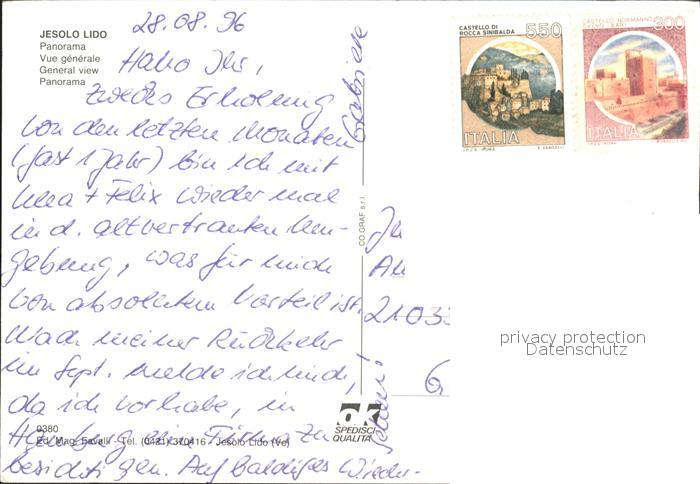 JESOLO LIDO
Panorama
Vue générale
General view
Panorama
28.08.96
CASTELLO DI
ROCCA SINIBALDA
550
ITALIA
CASTELLO NORMANNO
SVEVO - BARI
300
ITALIA
Hallo Ihr,
zwecks Erholung
von den letzten Monaten
(fast 1 Jahr) bin ich mit
+ Felix wieder mal
in d. altvertrauten Um-
gebung, was für mich
von absolutem Vorteil ist.
Nach meiner Rückkehr
im Sept. melde ich mich,
da ich vorhabe, in
Hamburg eine Firma zu
besichtigen. Auf baldiges Wieder-
sehen!
Gabriele
CO.GRAF s.r.l.
2103
G
privacy protection
Datenschutz
ok
SPEDISCI
QUALITÀ
0380
Ed. Mag. Favalli - Tel. (0421) 370416 - Jesolo Lido (Ve)